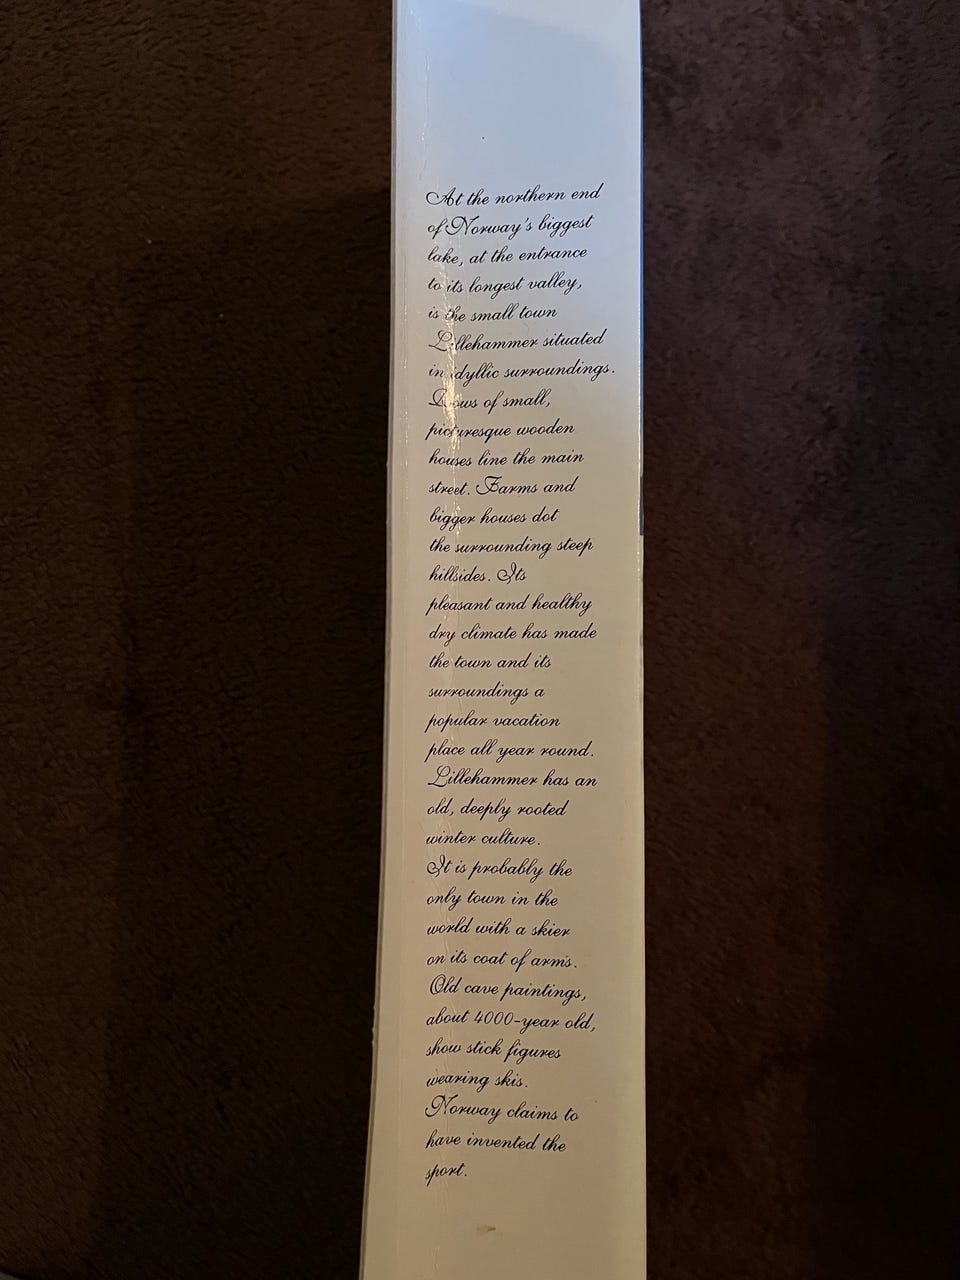 At the northern end
of Norway's biggest
lake, at the entrance
to its longest valley,
is the small town
Lillehammer situated
in idyllic surroundings.
Rows of small,
picturesque wooden
houses line the main
street. Farms and
bigger houses dot
the surrounding steep
hillsides. Its
pleasant and healthy
dry climate has made
the town and its
surroundings a
popular vacation
place all year round.
Lillehammer has an
old, deeply rooted
winter culture.
It is probably the
only town in the
world with a skier
on its coat of arms.
Old cave paintings,
about 4000-year old,
show stick figures
wearing skis.
Norway claims to
have invented the
sport.